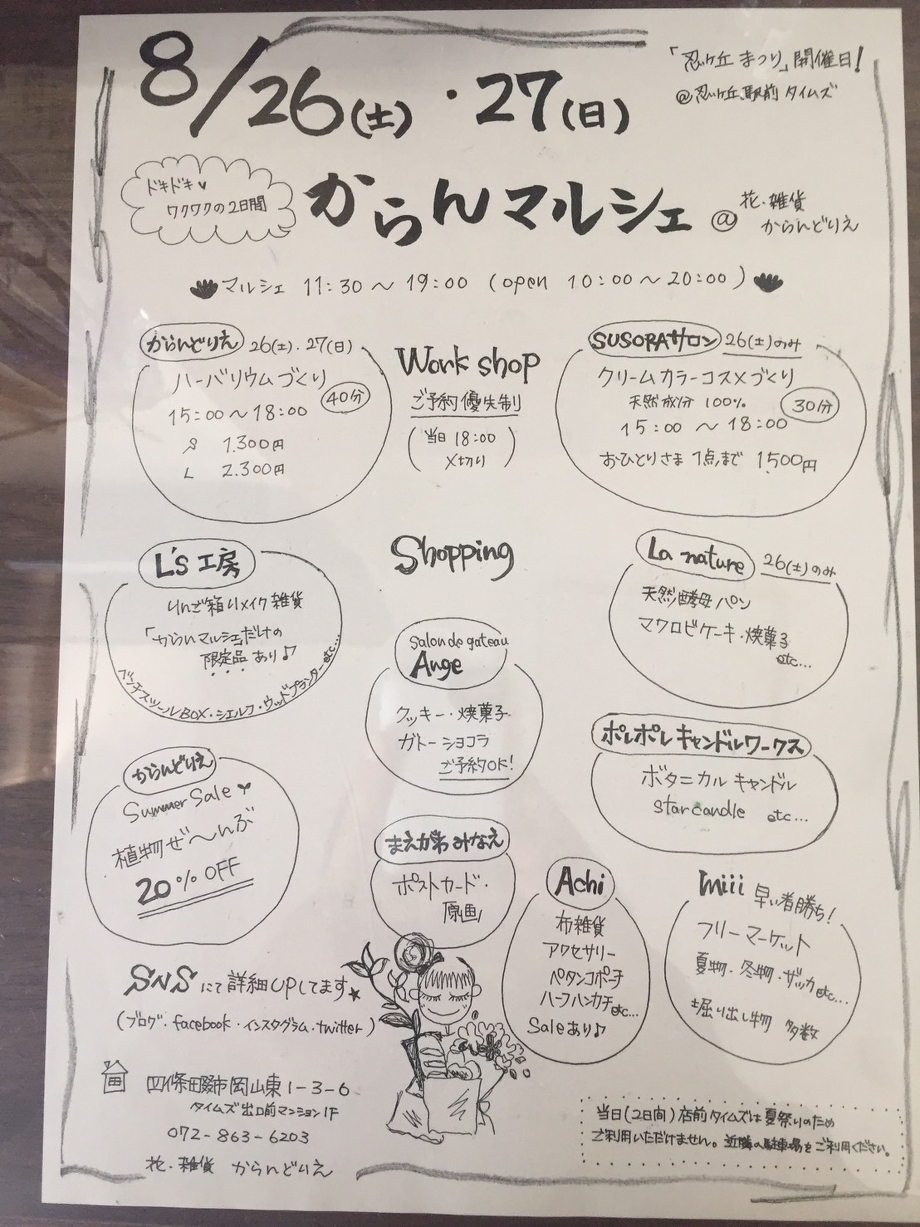 8/26(土)・27(日)
「忍ヶ丘まつり」開催日!
@忍ヶ丘駅前タイムズ
ドキドキ♥
ワクワクの2日間
からんマルシェ
@花・雑貨
からんどりえ
マルシェ 11:30～19:00 (open 10:00～20:00)
からんどりえ 26(土)・27(日)
ハーバリウムづくり
40分
15:00～18:00
S 1.300円
L 2.300円
Work shop
ご予約優先制
(当日 18:00
〆切り)
SUSORAサロン 26(土)のみ
クリームカラーコスメづくり
天然成分 100%
30分
15:00～18:00
おひとりさま 1点まで 1,500円
L's 工房
りんご箱リメイク雑貨
「からんマルシェ」だけの
限定品あり♪
ベンチスツールBOX・シェルフ・ウッドプランターetc...
Shopping
La nature 26(土)のみ
天然酵母パン
マクロビケーキ・焼菓子
etc...
Salon de gateau
Ange
クッキー・焼菓子
ガトーショコラ
ご予約OK!
からんどりえ
Summer Sale
植物ぜ～んぶ
20% OFF
ポレポレキャンドルワークス
ボタニカルキャンドル
star candle etc...
まえがわみなえ
ポストカード・
原画
Achi
布雑貨
アクセサリー
ペタンコポーチ
ハーフハンカチetc...
Saleあり♪
miii 早い者勝ち!
フリーマーケット
夏物・冬物・ザッカetc...
掘り出し物 多数
SNSにて詳細upしてます★
(ブログ・facebook・インスタグラム・twitter)
四條田畷市岡山東1-3-6
タイムズ出口前マンション1F
072-863-6203
花・雑貨 からんどりえ
当日(2日間)店前タイムズは夏祭りのため
ご利用いただけません。近隣の駐車場をご利用ください。